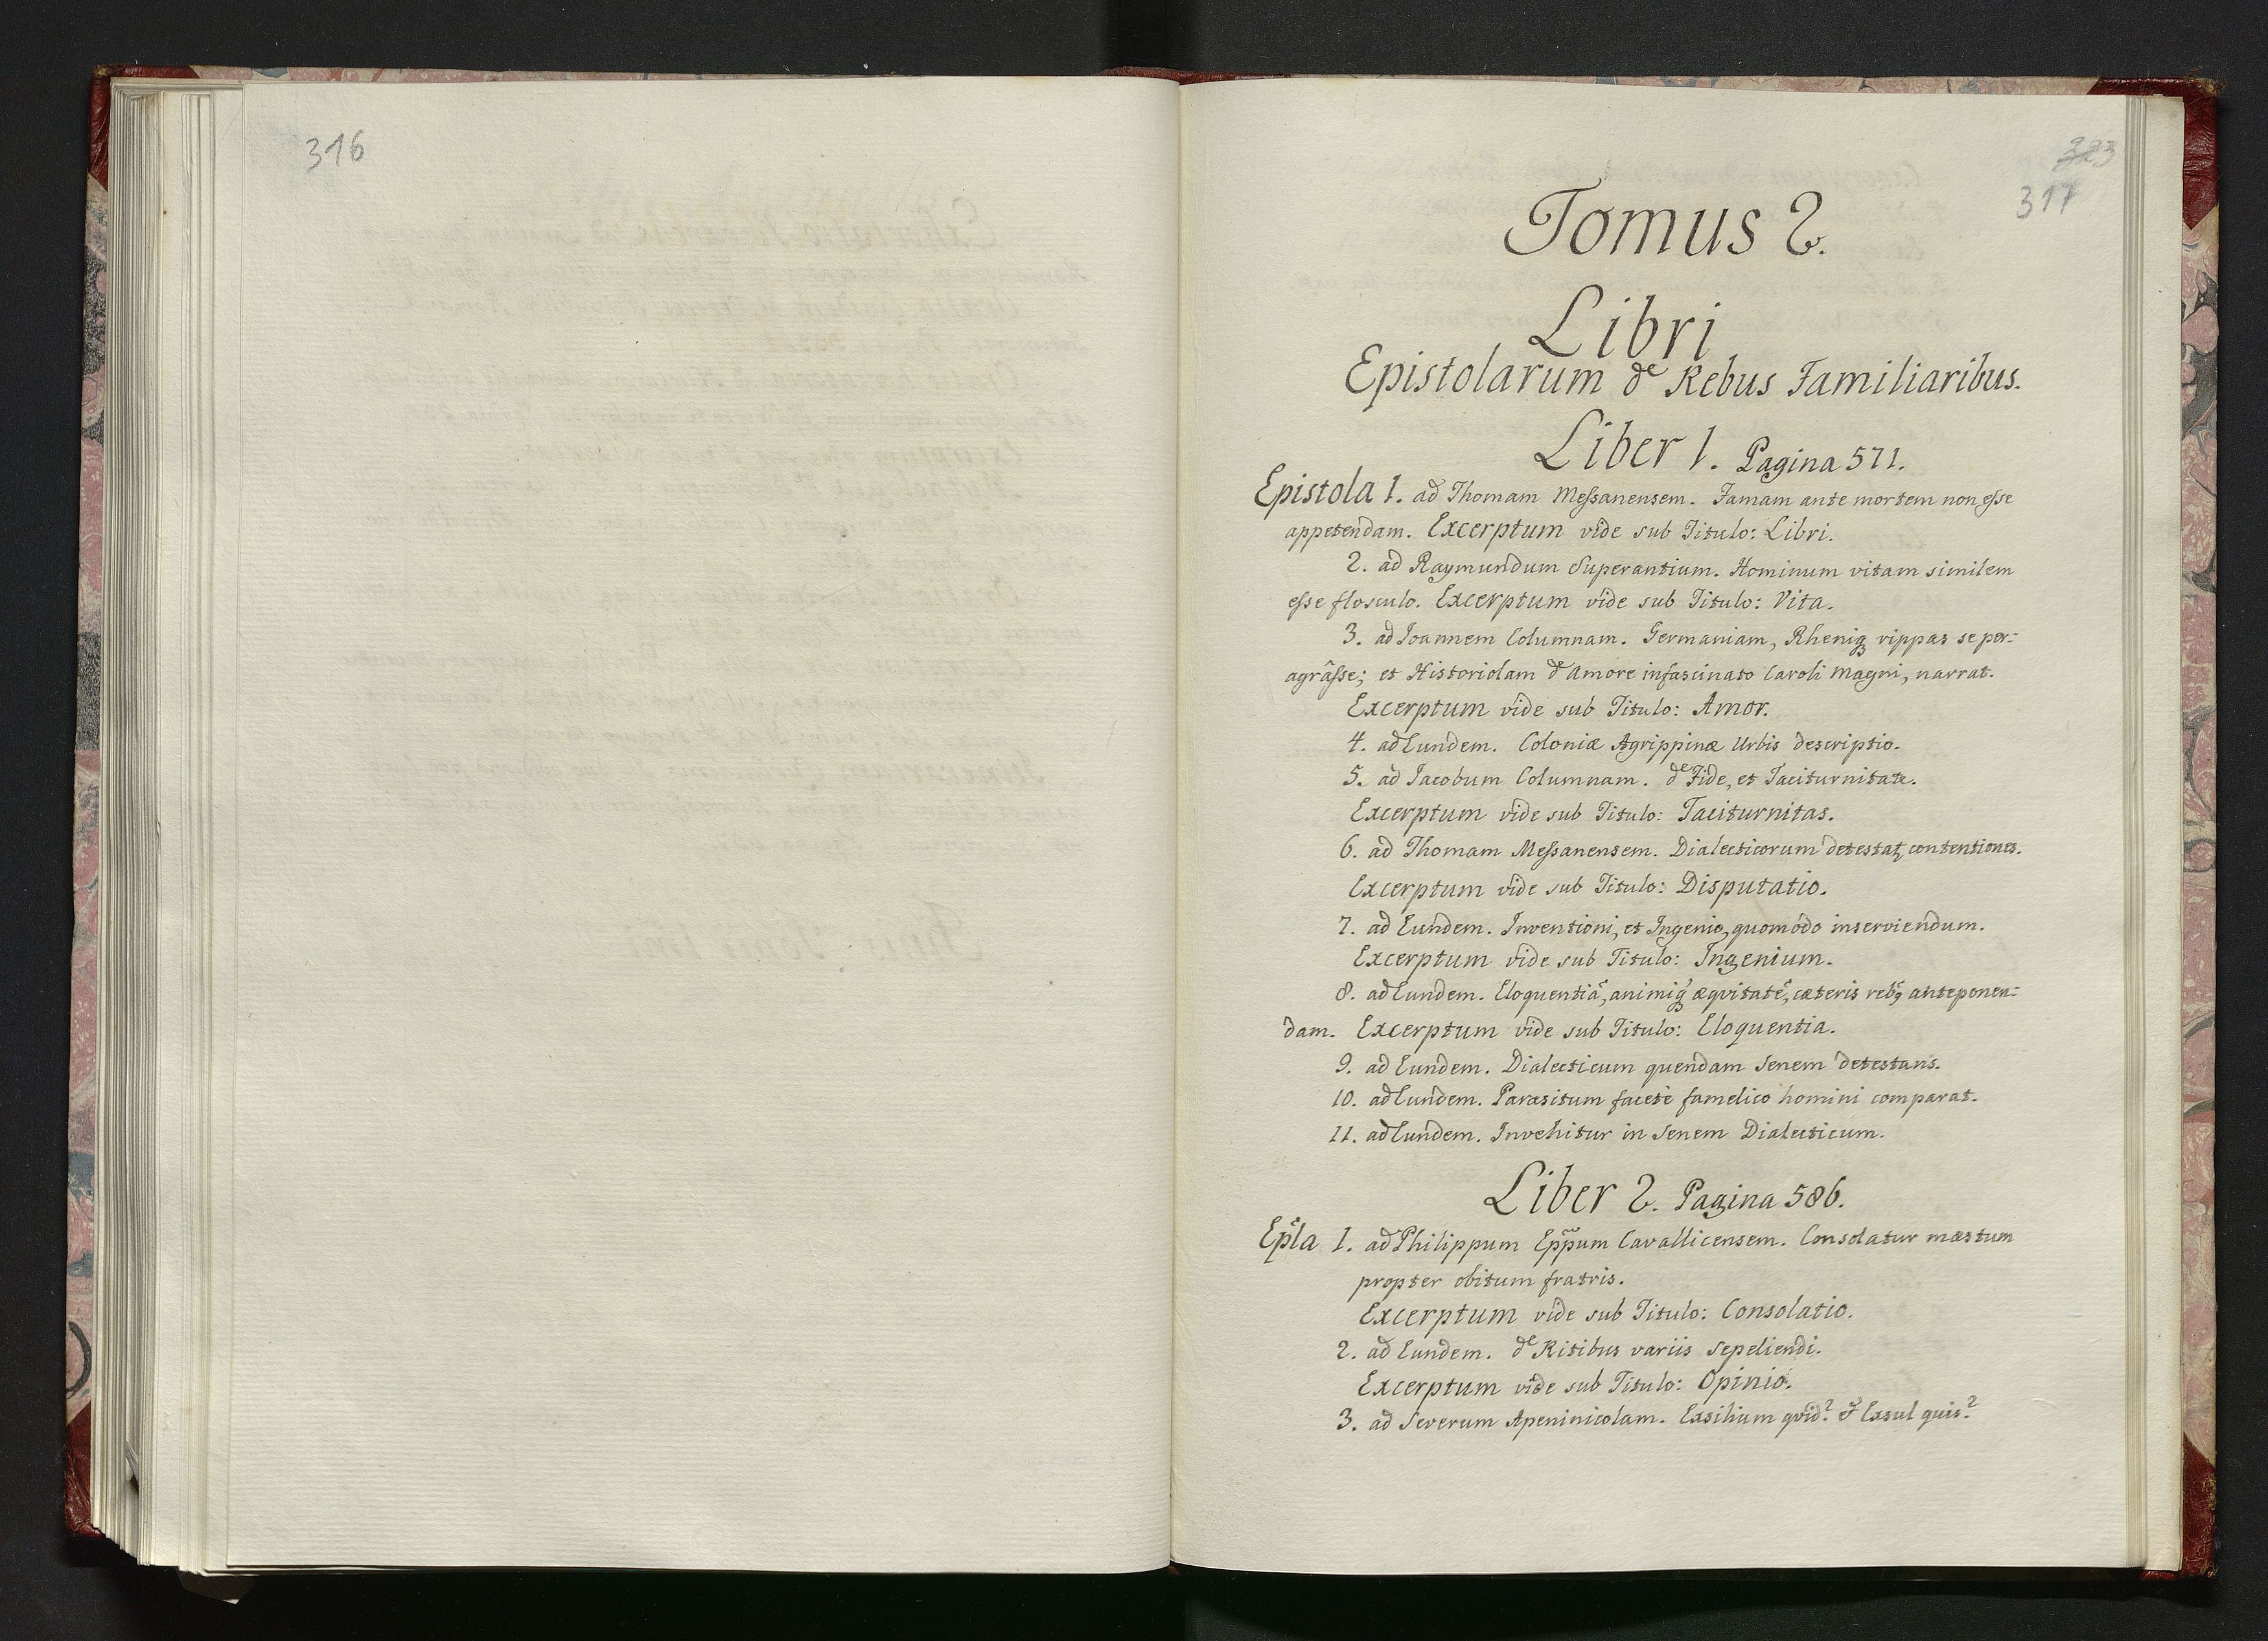 316
323
317
Tomus 2.
Libri
Epistolarum de Rebus Familiaribus.
Liber 1. Pagina 571.
Epistola 1. ad Thomam Meſsanensem. Famam ante mortem non eſse
appetendam. Excerptum vide sub Titulo: Libri.
2. ad Raymundum Superantium. Hominum vitam similem
eſse flosculo. Excerptum vide sub Titulo: Vita.
3. ad Joannem Columnam. Germaniam, Rheniqꝫ rippas se per-
agrâſse; et Historiolam de Amore infascinato Caroli Magni, narrat.
Excerptum vide sub Titulo: Amor.
4. ad Eundem. Coloniæ Agrippinæ Urbis descriptio.
5. ad Jacobum Columnam. de Fide, et Taciturnitate.
Excerptum vide sub Titulo: Taciturnitas.
6. ad Thomam Meſsanensem. Dialecticorum detestatꝫ contentiones.
Excerptum vide sub Titulo: Disputatio.
7. ad Eundem. Inventioni, et Ingenio, quomodo inserviendum.
Excerptum vide sub Titulo: Ingenium.
8. ad Eundem. Eloquentiã, animiqꝫ æqvitatẽ, cæteris rebꝫ anteponen-
dam. Excerptum vide sub Titulo: Eloquentia.
9. ad Eundem. Dialecticum quendam Senem detestans.
10. ad Eundem. Parasitum facetè famelico homini comparat.
11. ad Eundem. Invehitur in Senem Dialecticum.
Liber 2. Pagina 586.
Ep̃la 1. ad Philippum Epp̃um Cavallicensem. Consolatur mæstum
propter obitum fratris.
Excerptum vide sub Titulo: Consolatio.
2. ad Eundem. de Ritibus variis Sepeliendi.
Excerptum vide sub Titulo: Opinio.
3. ad Severum Apeninicolam. Exsilium qvid? & Exsul quis?